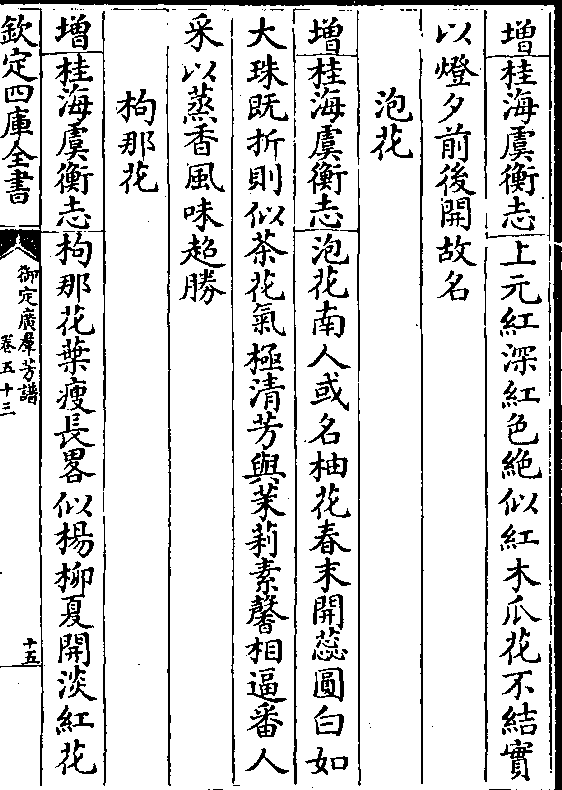 增桂海虞衡志上元紅深紅色絶似紅木瓜花不結實
以燈夕前後開故名
泡花
增桂海虞衡志泡花南人或名柚花春末開蕊圓白如
大珠既折則似茶花氣極清芳與茉莉素馨相逼番人
采以蒸香風味超勝
枸那花
增桂海虞衡志枸那花葉瘦長畧似楊柳夏開淡紅花
欽定四庫全書
御定廣羣芳譜
卷五十三
十五